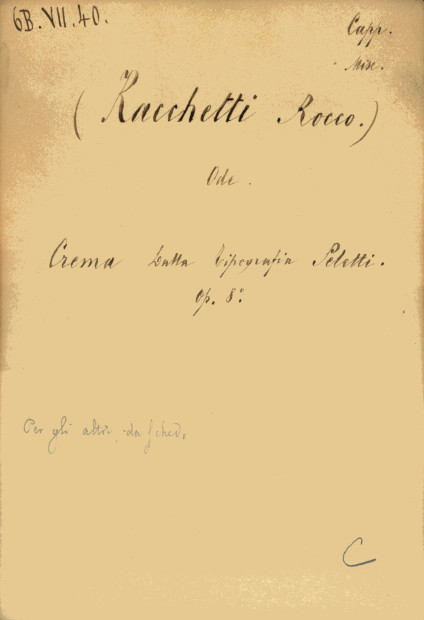 6B.VII.40.
Capp.
Misc.
(Racchetti Rocco.)
Ode.
Crema Dalla Tipografia Peletti.
Op. 8º
Per gli altri da sched.
C